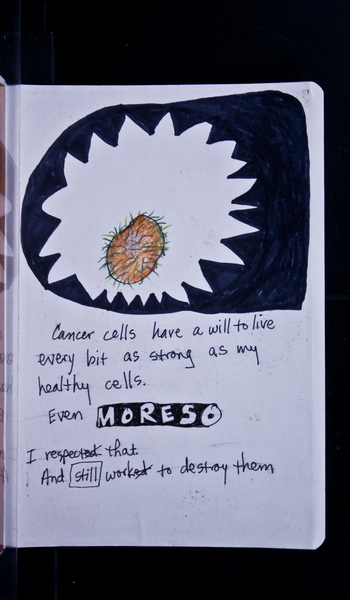 Cancer cells have a will to live
every bit as strong as my
healthy cells.
Even MORESO
I respected that.
And still worked to destroy them